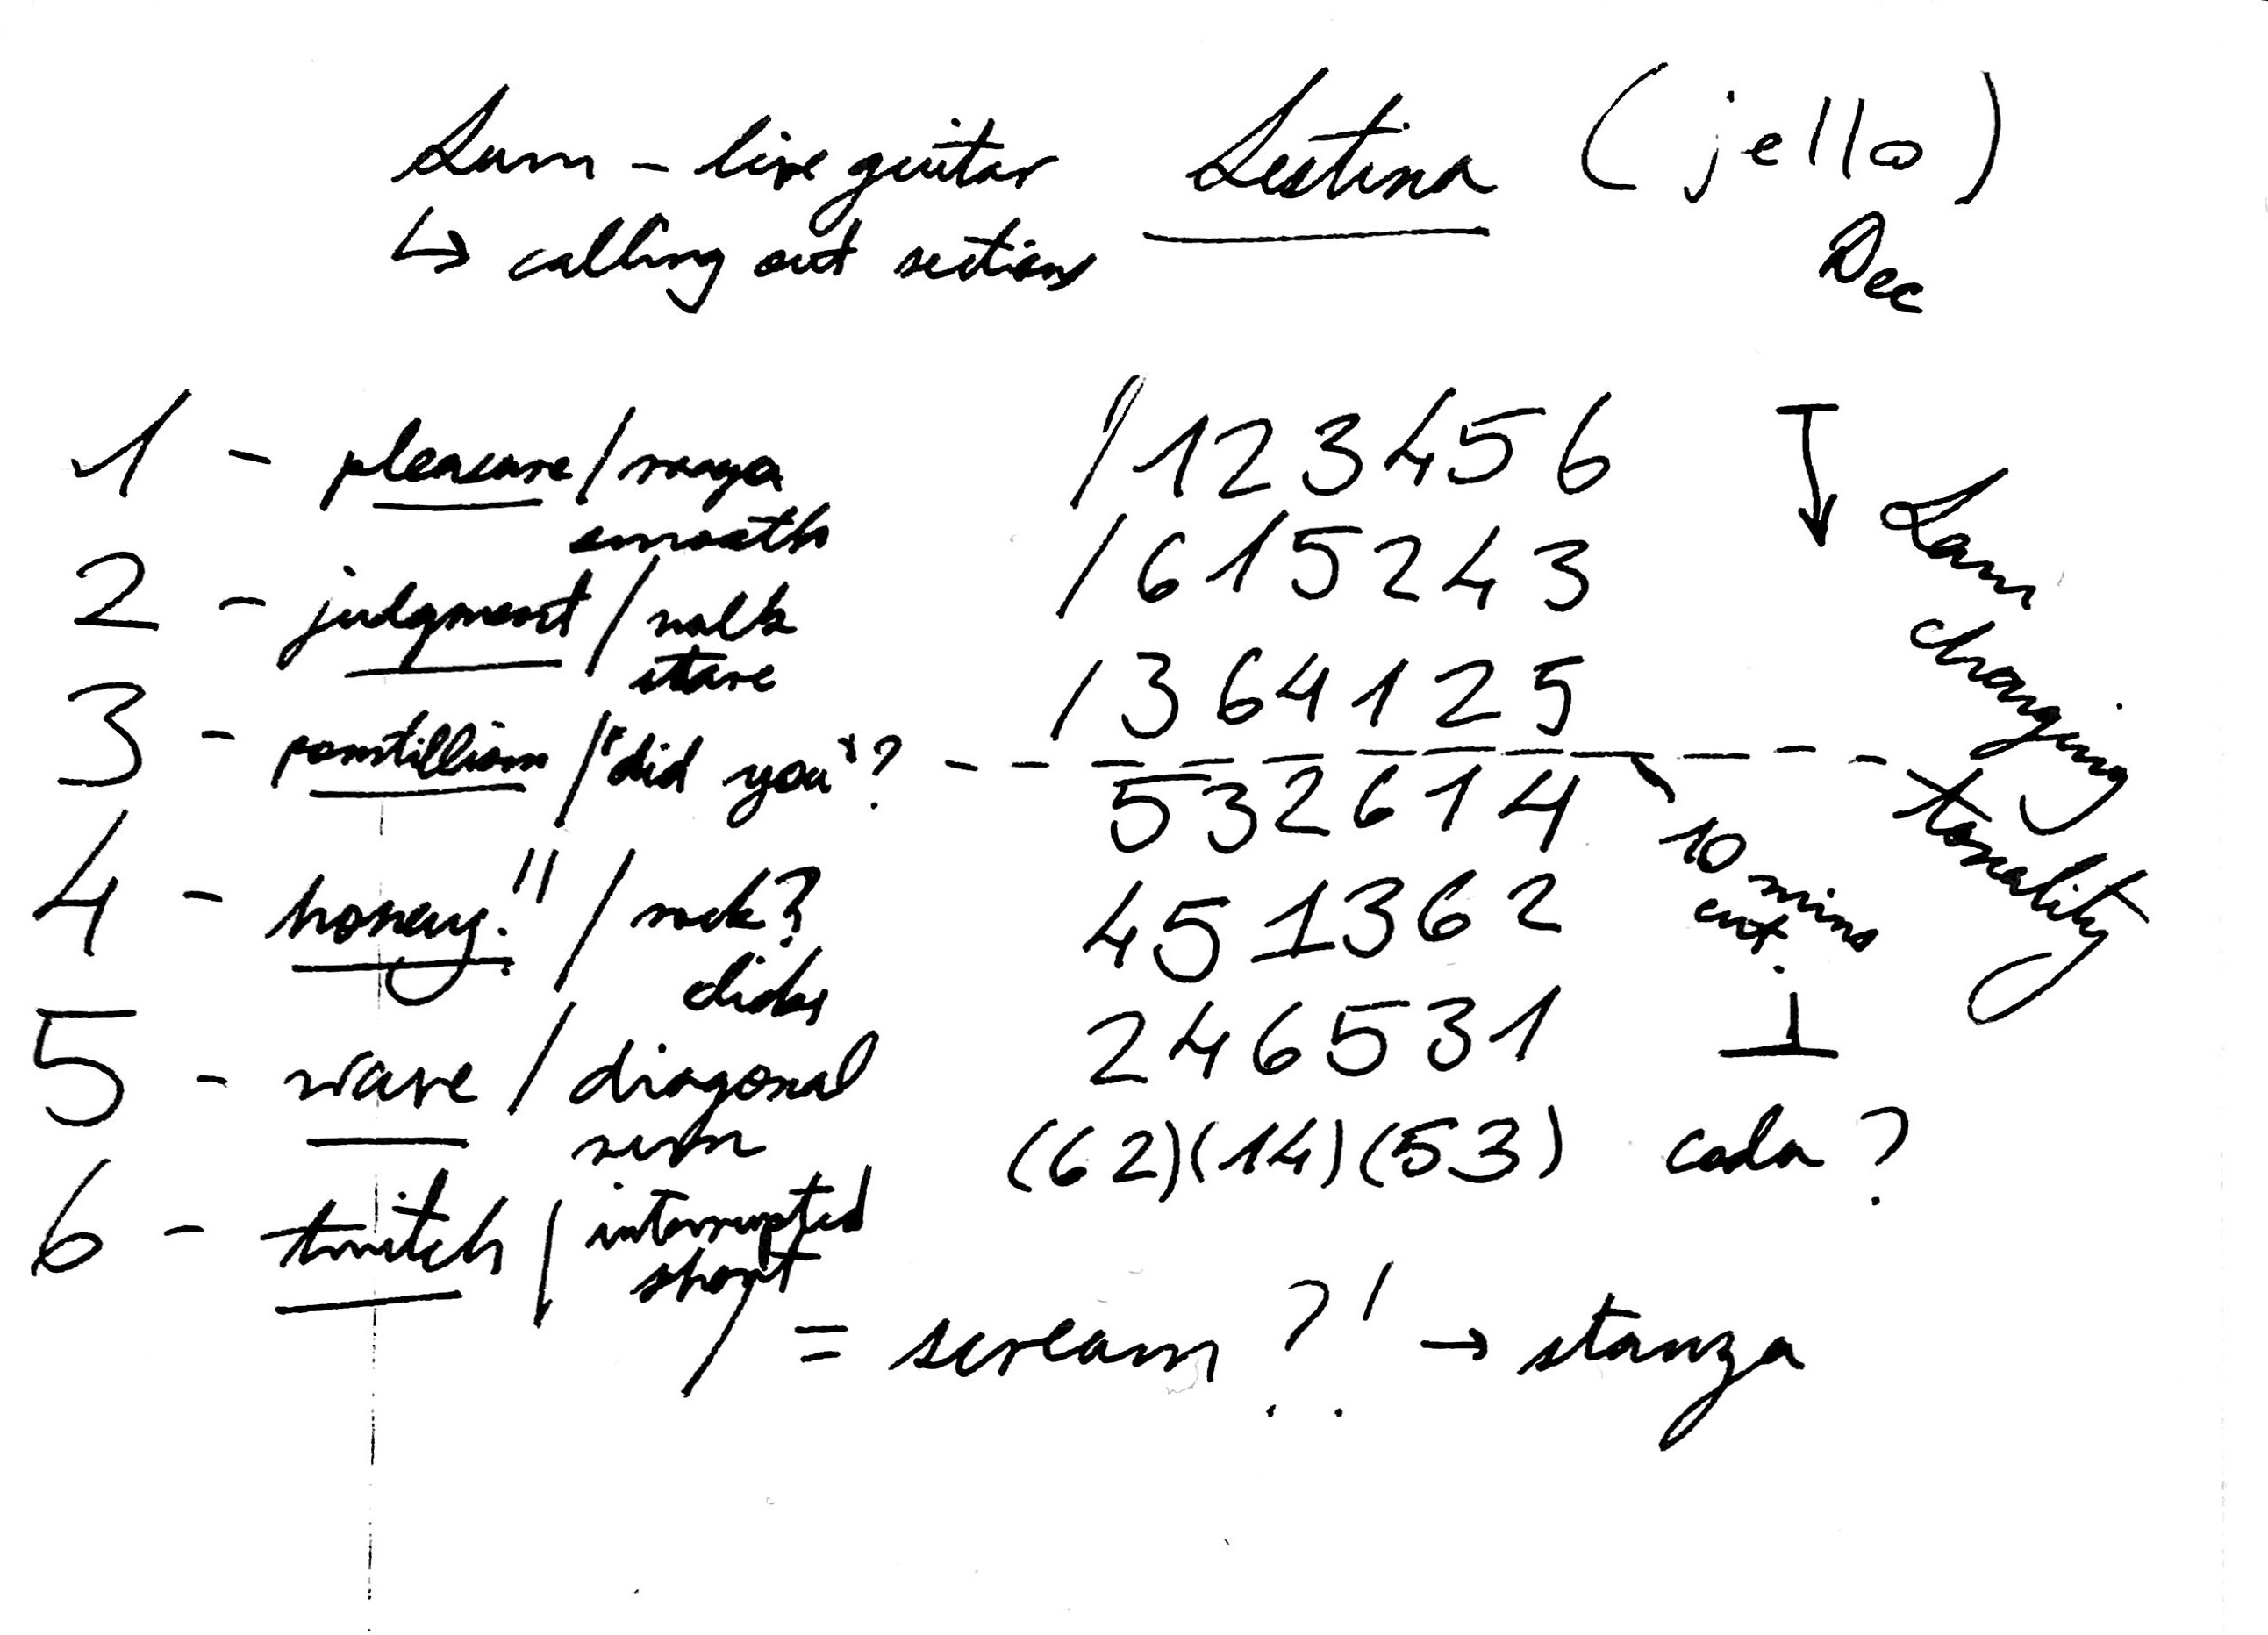 Sam - live guitar
↳ calling out sections
Sestina (jello)
Dec
1 - pleasure /
smooth
2 - judgment / walk
stare
3 - / "did you"?
4 - honey." / rock?
5 - wave / diagonal
6 - twitch / interrupted
short
/ 1 2 3 4 5 6
/ 6 1 5 2 4 3
/ 3 6 4 1 2 5
5 3 2 6 1 4
4 5 1 3 6 2
2 4 6 5 3 1
(62)(14)(53) coda?
Sam changing tonality
10 mins
/ = scream?! → stanza